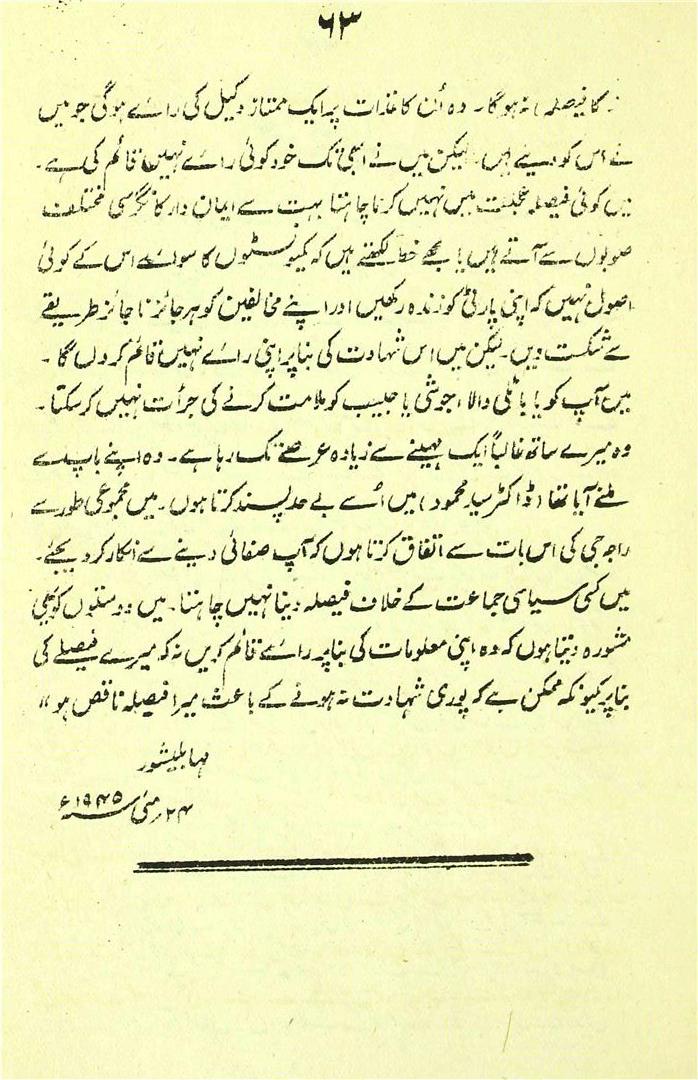 ۶۳
کا فیصلہ نہ ہوگا۔ وہ اُن کاغذات پر ایک ممتاز وکیل کی رائے ہوگی جو میں
نے اس کو دیے ہیں۔ لیکن میں نے ابھی تک خود کوئی رائے نہیں قائم کی ہے۔
میں کوئی فیصلہ عجلت میں نہیں کرنا چاہتا بہت سے ایمان دار کانگرسی مختلف
صوبوں سے آتے ہیں یا مجھے خط لکھتے ہیں کہ کمیونسٹوں کا سوائے اس کے کوئی
اصول نہیں کہ اپنی پارٹی کو زندہ رکھیں اور اپنے مخالفین کو ہر جائز ناجائز طریقے
سے شکست دیں۔ لیکن میں اس شہادت کی بنا پر اپنی رائے نہیں قائم کروں گا۔
میں آپ کو یا باٹلی والا، جوشی یا حبیب کو ملامت کرنے کی جرأت نہیں کرسکتا۔
وہ میرے ساتھ غالباً ایک مہینے سے زیادہ عرصے تک رہا ہے۔ وہ اپنے باپ سے
ملنے آیا تھا (ڈاکٹر سید محمود) میں اُسے بے حد پسند کرتا ہوں۔ میں مجموعی طور سے
راجہ جی کی اس بات سے اتفاق کرتا ہوں کہ آپ صفائی دینے سے انکار کر دیجئے۔
میں کسی سیاسی جماعت کے خلاف فیصلہ دینا نہیں چاہتا۔ میں دوستوں کو بھی
مشورہ دیتا ہوں کہ وہ اپنی معلومات کی بنا پر رائے قائم کریں نہ کہ میرے فیصلے کی
بنا پر کیونکہ ممکن ہے کہ پوری شہادت نہ ہونے کے باعث میرا فیصلہ ناقص ہو"
مہابلیشور
۲۴ مئی ۱۹۴۵ء